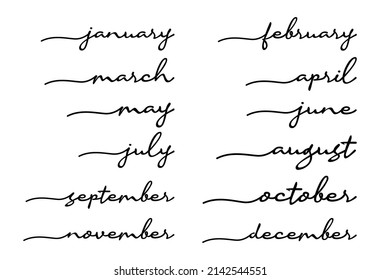 january february
march april
may june
july august
september october
november december
shutterstock.com · 2142544551